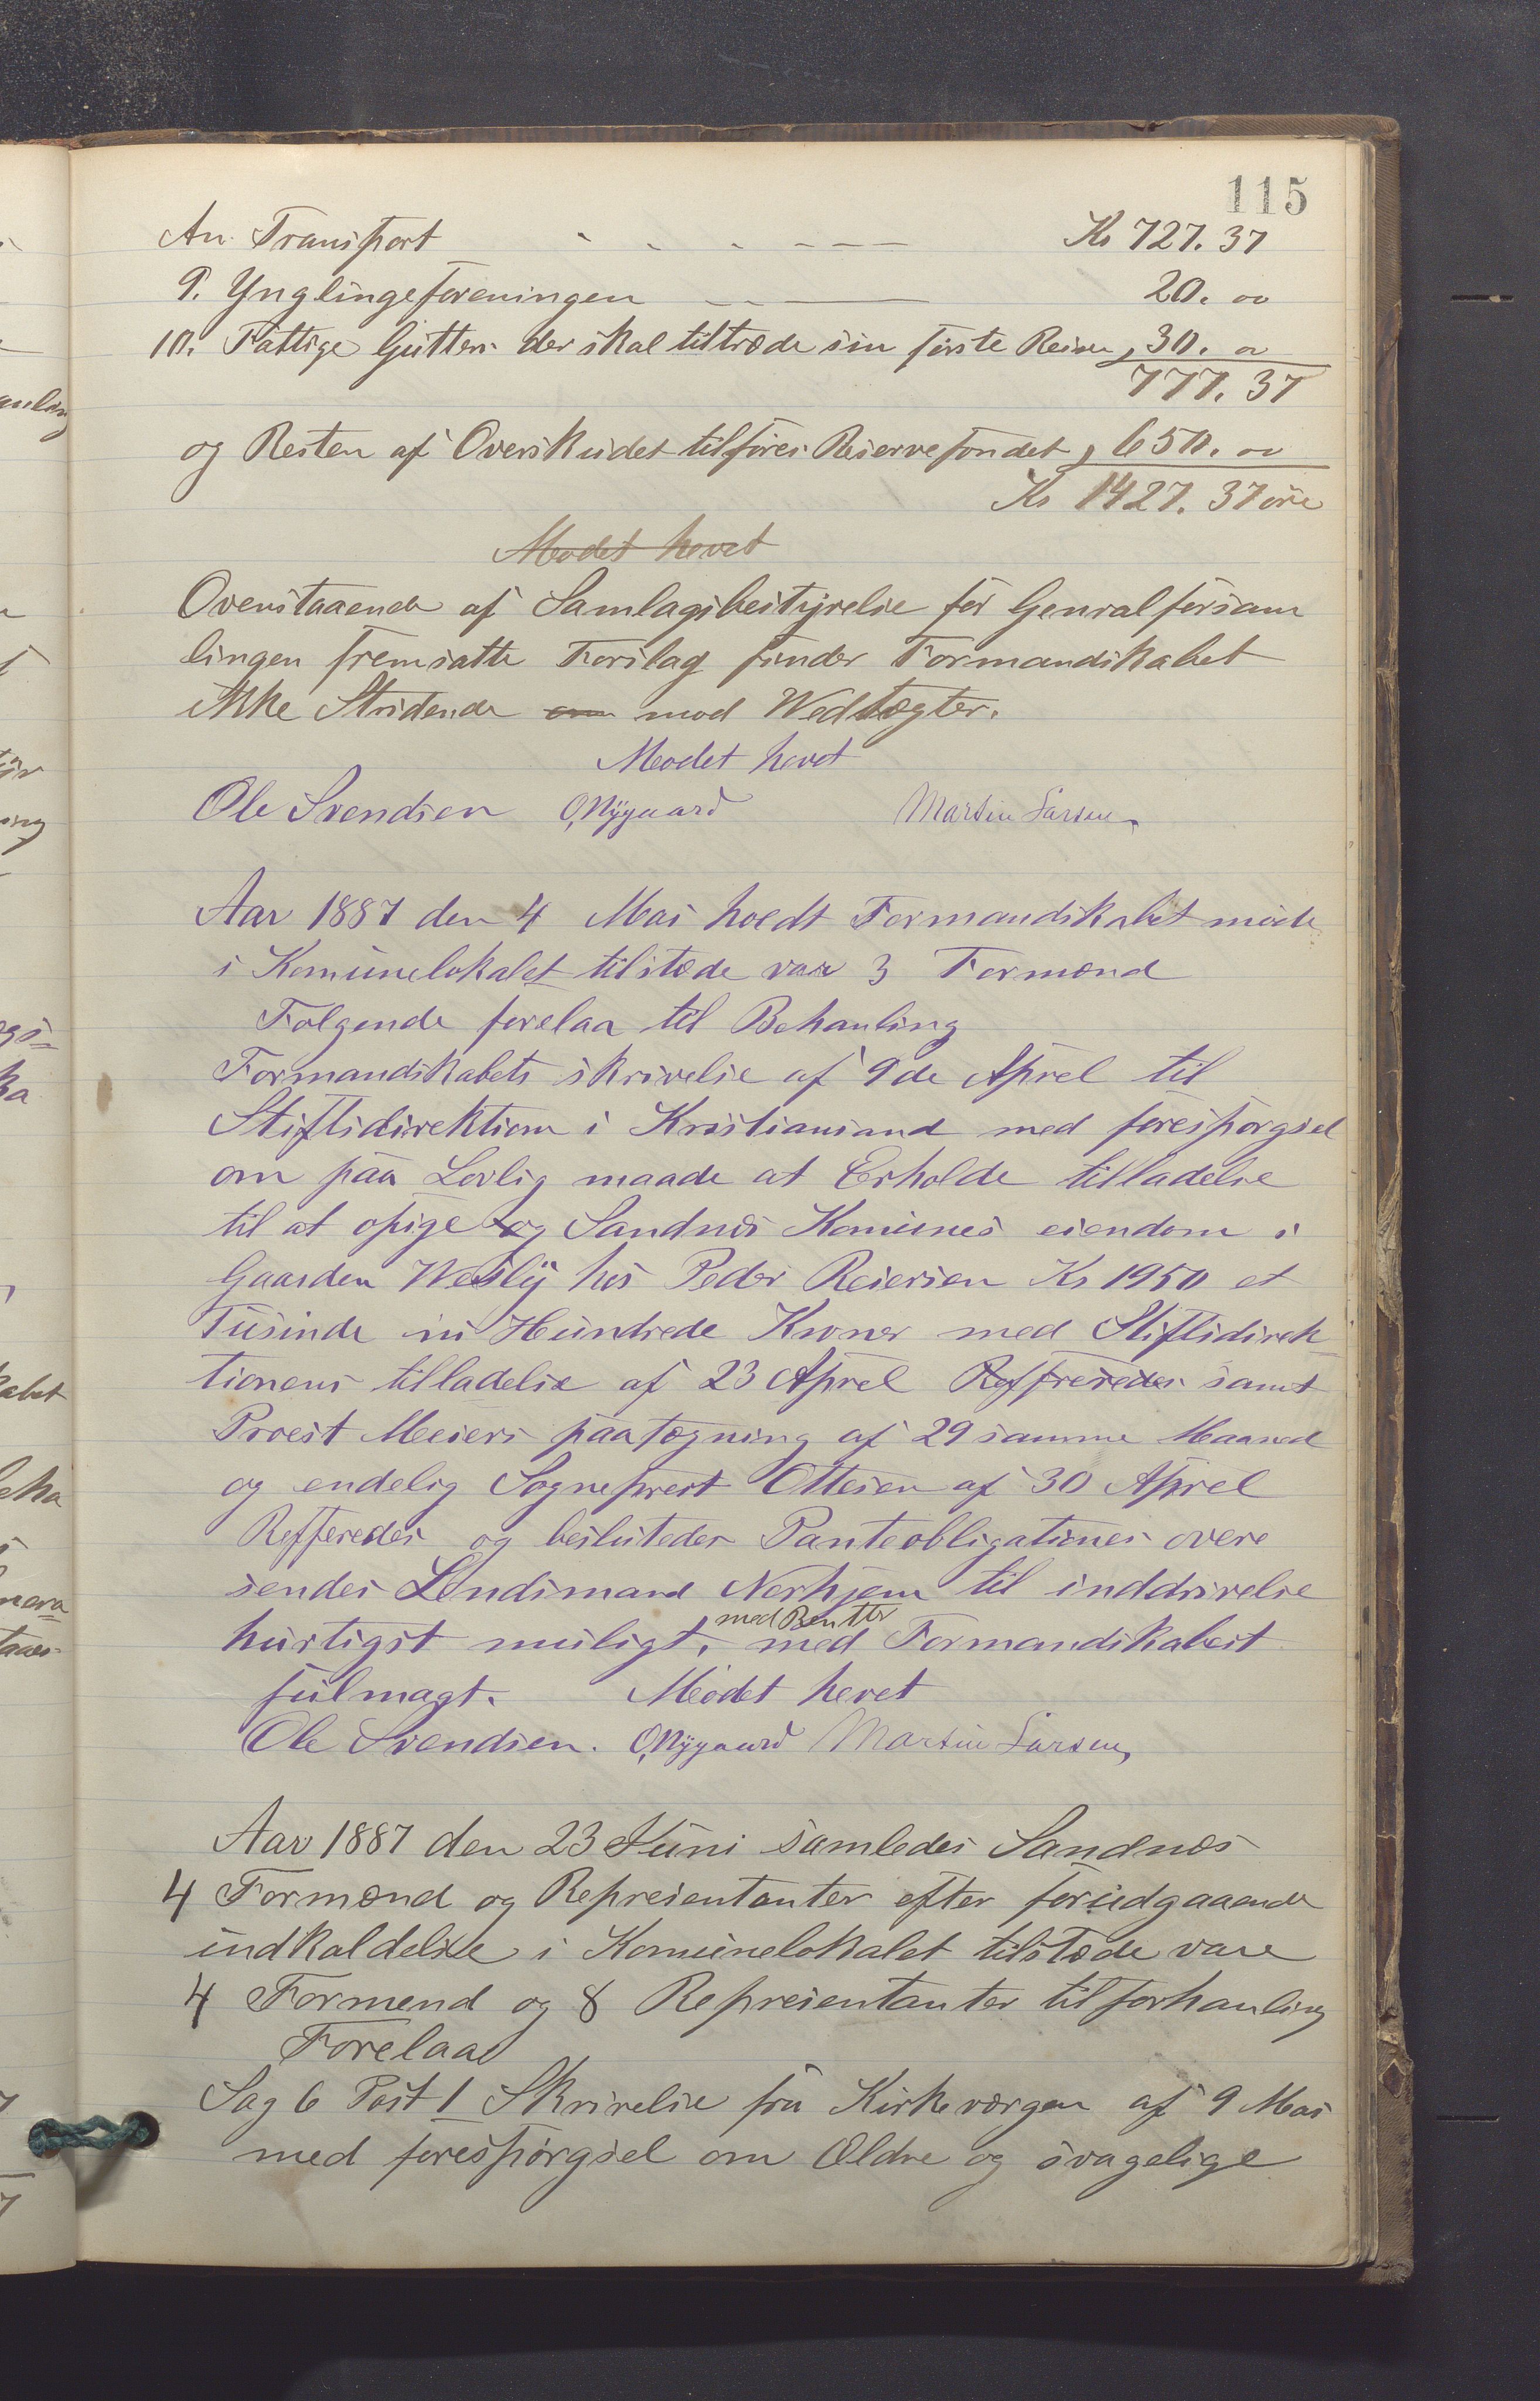 115
An Transport - - - - - - Kr 727. 37
9. Ynglingeforeningen - - - 20. oo
10. Fattige Gutter der skal tiltræde sin første Reise, 30. oo
777. 37
og Resten af Overskudet tilføres Reservefondet, 650. oo
Kr 1427. 37 øre
Mødet hevet
Ovenstaaende af Samlagsbestyrelse for Genralforsam
lingen fremsatte Forslag finder Formandskabet
ikke Stridende om mod Wedtægter.
Mødet hevet
Ole Svendsen O, Nygaard Martin Larsen
Aar 1887 den 4 Mai holdt Formandskabet møde
i Komunelokalet tilstede var 3 Formænd
Følgende forelaa til Behanling
Formandskabets skrivelse af 9de Aprel til
Stiftsdirektion i Kristiansand med forespørgsel
om paa Lovlig maade at Erholde tilladelse
til at opsige og Sandnes Komunes eiendom i
Gaarden Wesly hos Peder Reiersen Kr 1950 et
Tusinde ni Hundrede Kroner med Stiftsdirek
tionens tilladelse af 23 Aprel Reffereredes samt
Proest Meiers paategning af 29 samme Maaned
og endelig Sogneprest Ottesen af 30 Aprel
Refferedes og besluteder Panteobligationes overe
sendes Lendsmand Norhjem til inddrivelse
med Rentter
hurtigst muligt, med Formandskabest
fulmagt. Mødet hevet
Ole Svendsen. O, Nygaard Martin Larsen,
Aar 1887 den 23 Juni samledes Sandnæs
4 Formænd og Represientanter efter forudgaaende
indkaldelse i Komunelokalet tilstede vare
4 Formend og 8 Represientanter til forhanling
Forelaa
Sag 6 Post 1 Skrivelse fra Kirkeværgen af 9 Mai
med forespørgsel om Ældre og svagelige